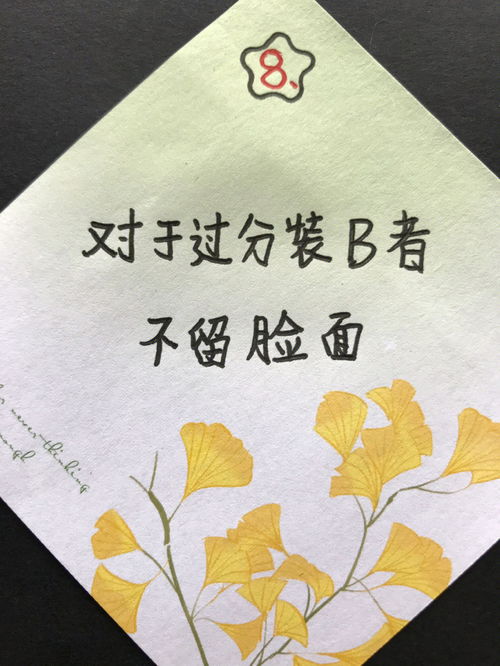 8、
对于过分装B者
不留脸面
never thinking